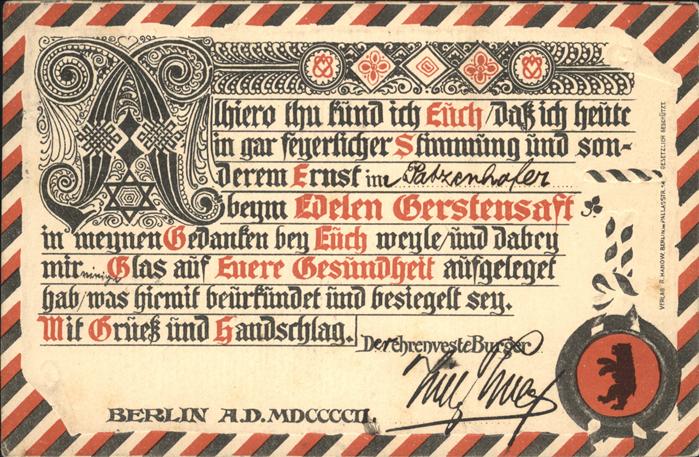 Alhiero thu kund ich Euch/daß ich heute
in gar feyerlicher Stimmung und son-
derem Ernst im Patzenhofer
beym Edelen Gerstensaft
in meynen Gedanken bey Euch weyle/und dabey
mir einige Glas auf Euere Gesundheit aufgeleget
hab/was hiemit beurkundet und besiegelt sey.
Mit Grueß und Handschlag.
Der ehrenveste Burger
BERLIN A.D. MDCCCCII
VERLAG R. MAROW, BERLIN.W. PALLASSTR. 14 GESETZLICH GESCHÜTZT